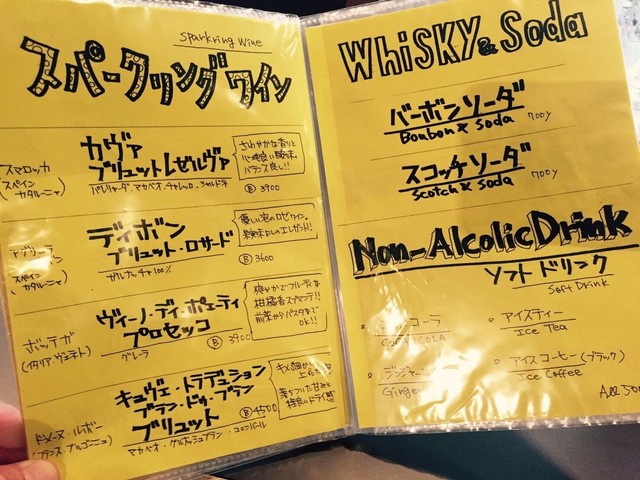 Sparkring Wine
スパークリングワイン
スマロッカ
スペイン
カタルーニャ
カヴァ
ブリュットレゼルヴァ
パレリャーダ、マカベオ、チャレッロ、シャルドネ
さわやかな香りと
心地良い酸味。
バランス良し!!
Ⓑ 3900
スペイン
カタルーニャ
ディボン
ブリュット・ロサード
ガルナッチャ100%
優しい泡のロゼワイン。
Ⓑ 3600
ボッテガ
(イタリア・ヴェネト)
ヴィーノ・ディ・ポエーティ
プロセッコ
グレーラ
爽やかでフルーティな
柑橘香
前菜からパスタまで
OK!!
Ⓑ 3900
ドメーヌ・ルボー
フランス・ブルゴーニュ
キュヴェ・トラデュション
ブラン・ドゥ・ブラン
ブリュット
マカベオ・
Ⓑ 4500
WhiSKY & Soda
バーボンソーダ
Bonbon & Soda
700y
スコッチソーダ
Scotch & Soda
700y
Non-AlcolicDrink
ソフトドリンク
Soft Drink
コーラ
COLA
アイスティー
Ice Tea
ジンジャー
Ginger
アイスコーヒー(ブラック)
Ice Coffee
All 500